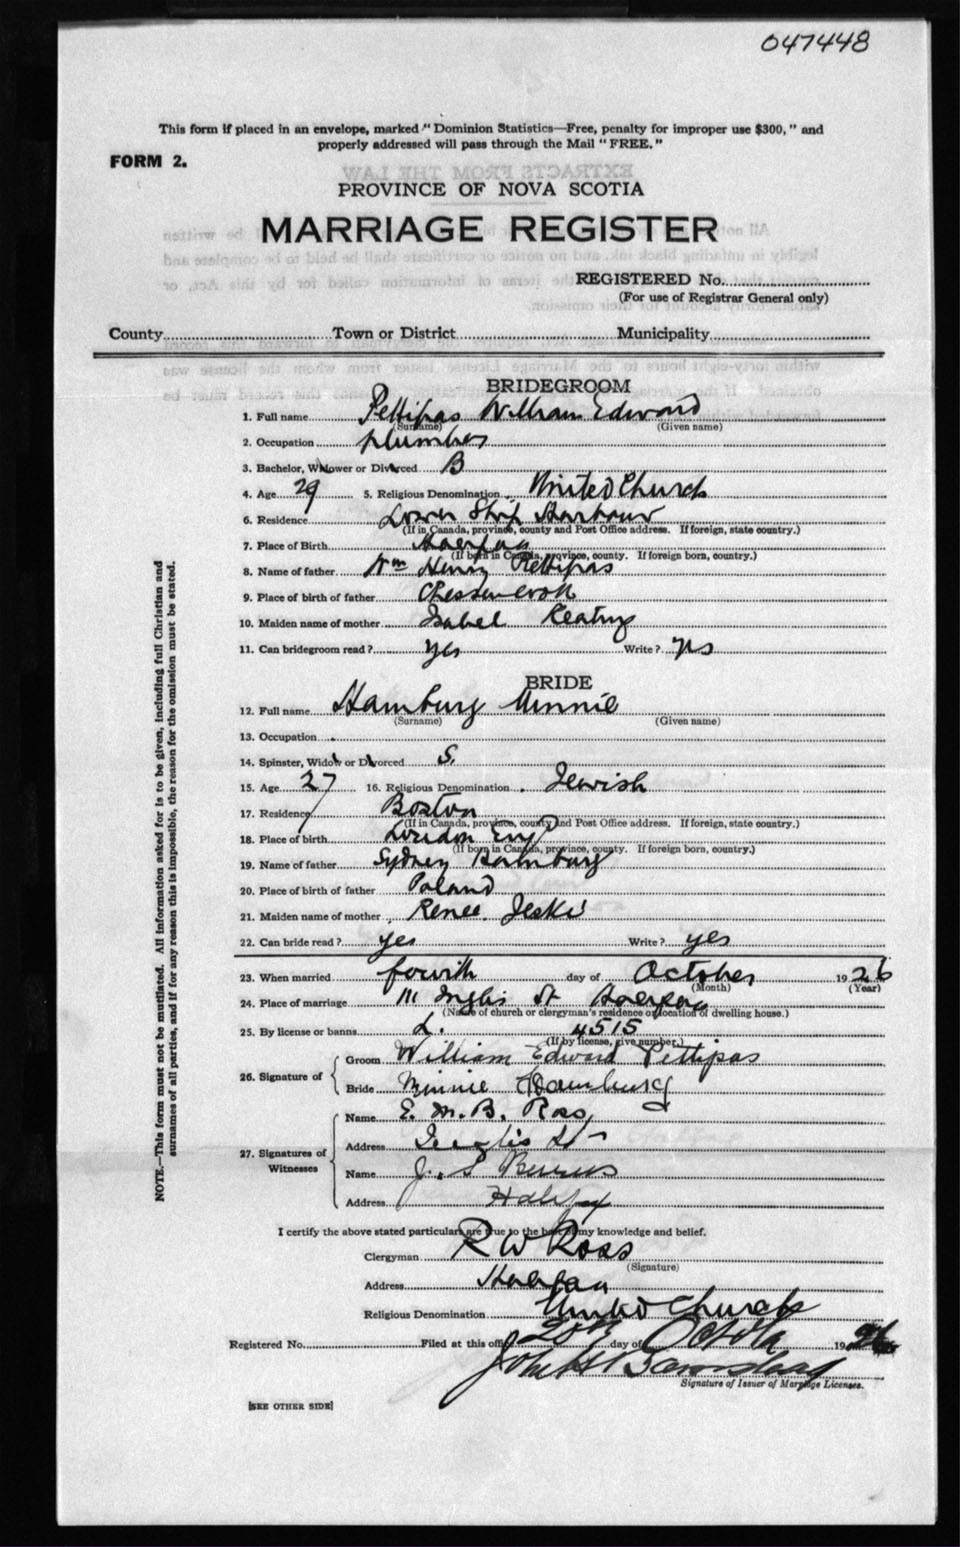 047448
This form if placed in an envelope, marked "Dominion Statistics—Free, penalty for improper use $300," and
properly addressed will pass through the Mail "FREE."
FORM 2.
PROVINCE OF NOVA SCOTIA
MARRIAGE REGISTER
REGISTERED No.
(For use of Registrar General only)
County Town or District Municipality
BRIDEGROOM
1. Full name Pettipas William Edward
(Surname) (Given name)
2. Occupation plumber
3. Bachelor, Widower or Divorced B
4. Age 29 5. Religious Denomination United Church
6. Residence Lower Ship Harbour
(If in Canada, province, county and Post Office address. If foreign, state country.)
7. Place of Birth Halifax
(If born in Canada, province, county. If foreign born, country.)
8. Name of father Wm Henry Pettipas
9. Place of birth of father Chezzetcook
10. Maiden name of mother Isabel Keating
11. Can bridegroom read? yes Write? yes
BRIDE
12. Full name Hamburg Minnie
(Surname) (Given name)
13. Occupation
14. Spinster, Widow or Divorced S.
15. Age 27 16. Religious Denomination Jewish
17. Residence Boston
(If in Canada, province, county and Post Office address. If foreign, state country.)
18. Place of birth London Eng
(If born in Canada, province, county. If foreign born, country.)
19. Name of father Sydney Hamburg
20. Place of birth of father Poland
21. Maiden name of mother Renee Jeski
22. Can bride read? yes Write? yes
23. When married fourth day of October 1926
(Month) (Year)
24. Place of marriage Inglis St Halifax
(Name of church or clergyman's residence or location of dwelling house.)
25. By license or banns L. 4515
(If by license, give number.)
26. Signature of Groom William Edward Pettipas
Bride Minnie Hamburg
27. Signatures of Witnesses Name E. M. B. Ross
Address Inglis St
Name J. S
Address Halifax
I certify the above stated particulars are true to the best of my knowledge and belief.
Clergyman R W Ross
(Signature)
Address Halifax
Religious Denomination United Church
Registered No. Filed at this office 20th day of October 1926
John H Barnstead
Signature of Issuer of Marriage Licenses.
[SEE OTHER SIDE]
NOTE.—This form must not be mutilated. All information asked for is to be given, including full Christian and
surnames of all parties, and if for any reason this is impossible, the reason for the omission must be stated.